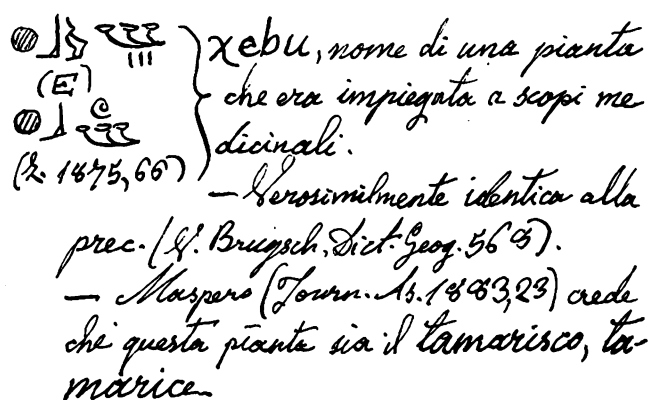 χebu, nome di una pianta
(E)
che era impiegata a scopi me
dicinali.
(Z. 1875,66)
— Verosimilmente identica alla
prec. (V. Brugsch, Dict. Geog. 568).
— Maspero (Journ. As. 1883,23) crede
che questa pianta sia il tamarisco, ta-
marice.